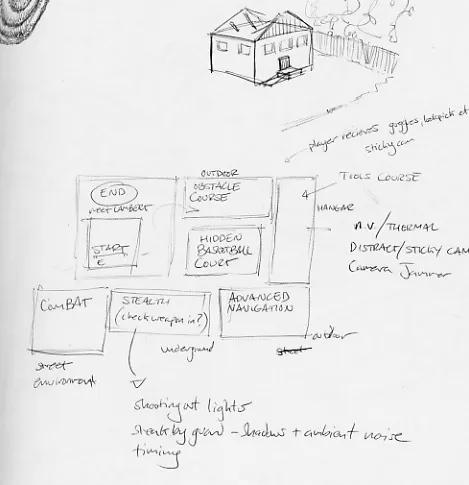 player recieves goggles, lockpick et
sticky cam
TOOLS COURSE
OUTDOOR
OBSTACLE
COURSE
END
MEET LAMBERT
4
HANGAR
N.V./THERMAL
DISTRACT/STICKY CAM
Camera Jammer
START
E
HIDDEN
BASKETBALL
COURT
COMBAT
STEALTH
(check weapon in?)
ADVANCED
NAVIGATION
street
environment
underground
outdoor
street
shooting out lights
sneak by guard - shadows + ambient noise
timing